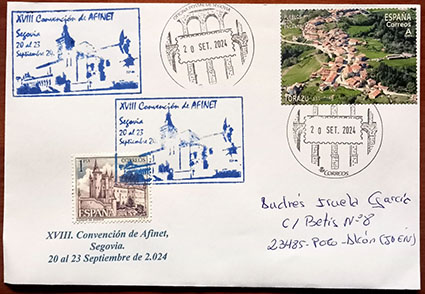 XVIII Convención de AFINET
Segovia
20 al 23
Septiembre 20
20 SET. 2024
ESPAÑA
Correos
A
TORAZO
XVIII Convención de AFINET
Segovia
20 al 23
Septiembre 20
20 SET. 2024
CORREOS
1 PTA
CORREOS
ESPAÑA
XVIII. Convención de Afinet,
Segovia.
20 al 23 Septiembre de 2.024
García
C/ Betis Nº 8
23485-POZO-Alcón (JAÉN)